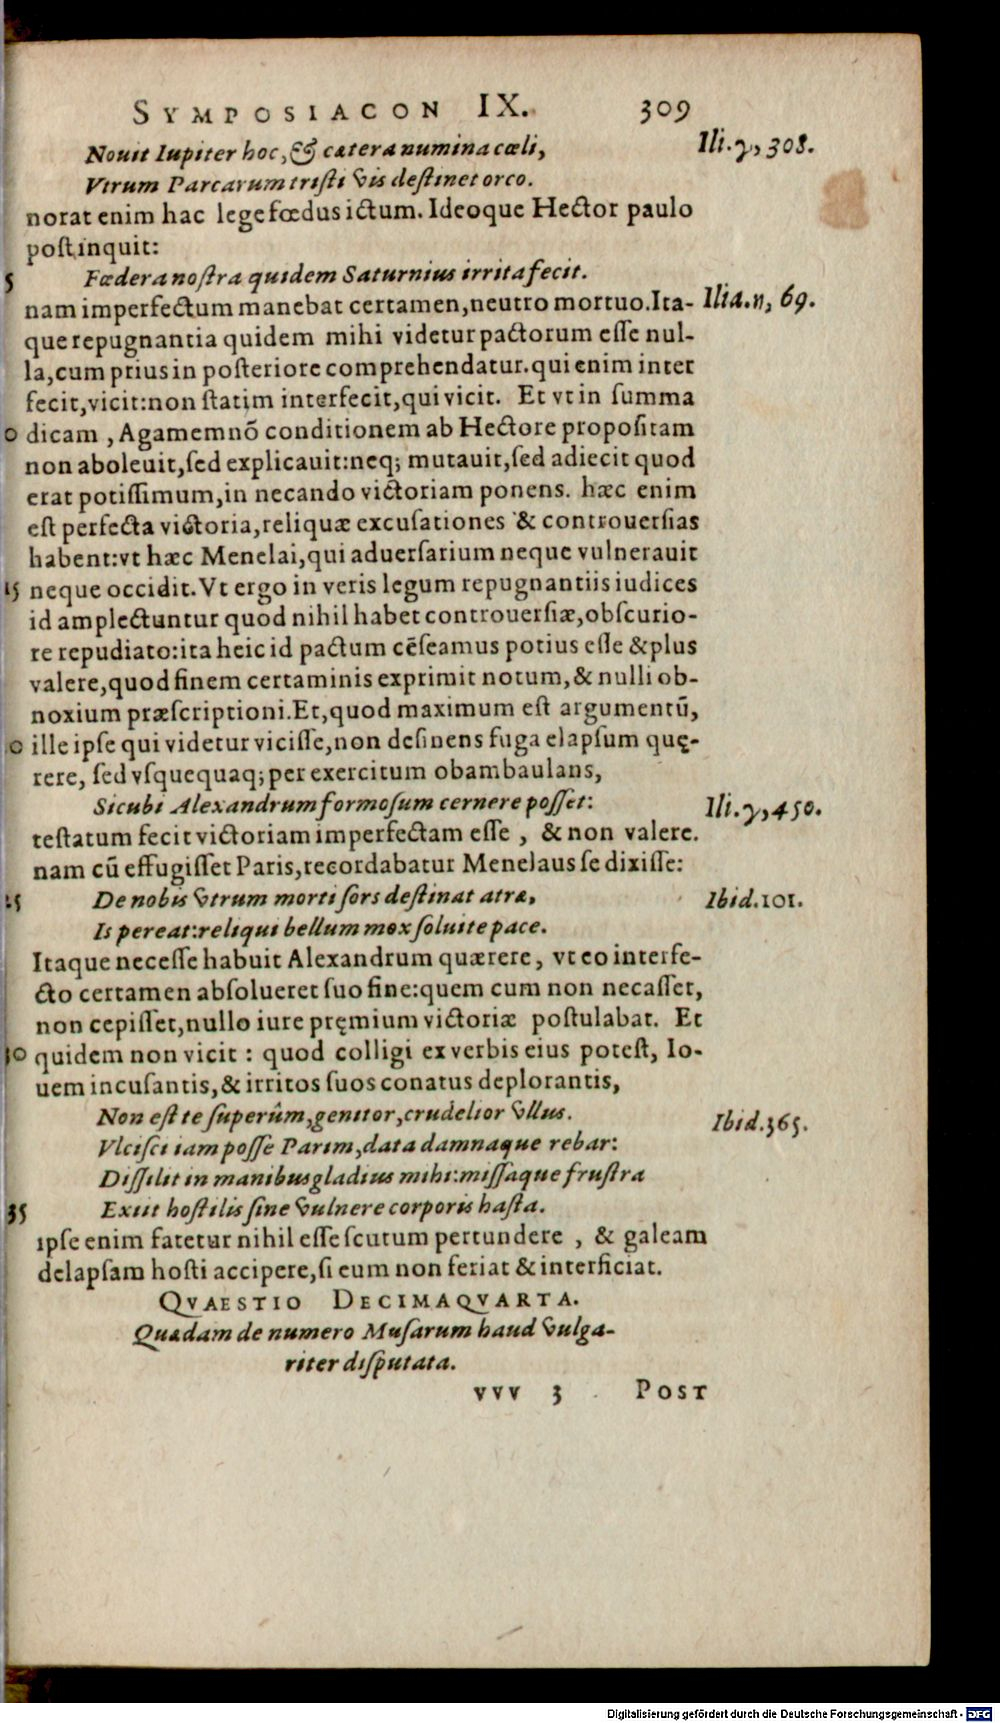 SYMPOSIACON IX. 309
Nouit Iupiter hoc, & cætera numina cœli, Ili.γ, 308.
Vtrum Parcarum tristi vis destinet orco.
norat enim hac lege fœdus ictum. Ideoque Hector paulo
post inquit:
5 Fœdera nostra quidem Saturnius irrita fecit.
nam imperfectum manebat certamen, neutro mortuo. Ita- Ilia.η, 69.
que repugnantia quidem mihi videtur pactorum esse nul-
la, cum prius in posteriore comprehendatur. qui enim inter
fecit, vicit: non statim interfecit, qui vicit. Et vt in summa
0 dicam, Agamemnõ conditionem ab Hectore propositam
non aboleuit, sed explicauit: neq; mutauit, sed adiecit quod
erat potissimum, in necando victoriam ponens. hæc enim
est perfecta victoria, reliquæ excusationes & controuersias
habent: vt hæc Menelai, qui aduersarium neque vulnerauit
15 neque occidit. Vt ergo in veris legum repugnantiis iudices
id amplectuntur quod nihil habet controuersiæ, obscurio-
re repudiato: ita heic id pactum cẽseamus potius esse & plus
valere, quod finem certaminis exprimit notum, & nulli ob-
noxium præscriptioni. Et, quod maximum est argumentũ,
0 ille ipse qui videtur vicisse, non desinens fuga elapsum quę-
rere, sed vsquequaq; per exercitum obambaulans,
Sicubi Alexandrum formosum cernere posset: Ili.γ, 450.
testatum fecit victoriam imperfectam esse, & non valere.
nam cũ effugisset Paris, recordabatur Menelaus se dixisse:
25 De nobis vtrum morti sors destinat atræ, Ibid. 101.
Is pereat: reliqui bellum mox soluite pace.
Itaque necesse habuit Alexandrum quærere, vt eo interfe-
cto certamen absolueret suo fine: quem cum non necasset,
non cepisset, nullo iure pręmium victoriæ postulabat. Et
30 quidem non vicit: quod colligi ex verbis eius potest, Io-
uem incusantis, & irritos suos conatus deplorantis,
Non est te superûm, genitor, crudelior vllus. Ibid. 365.
Vlcisci iam posse Parim, data damnaque rebar:
Dissilit in manibus gladius mihi: missaque frustra
35 Exiit hostilis sine vulnere corporis hasta.
ipse enim fatetur nihil esse scutum pertundere, & galeam
delapsam hosti accipere, si eum non feriat & interficiat.
QVAESTIO DECIMAQVARTA.
Quædam de numero Musarum haud vulga-
riter disputata.
VVV 3 POST
Digitalisierung gefördert durch die Deutsche Forschungsgemeinschaft - DFG